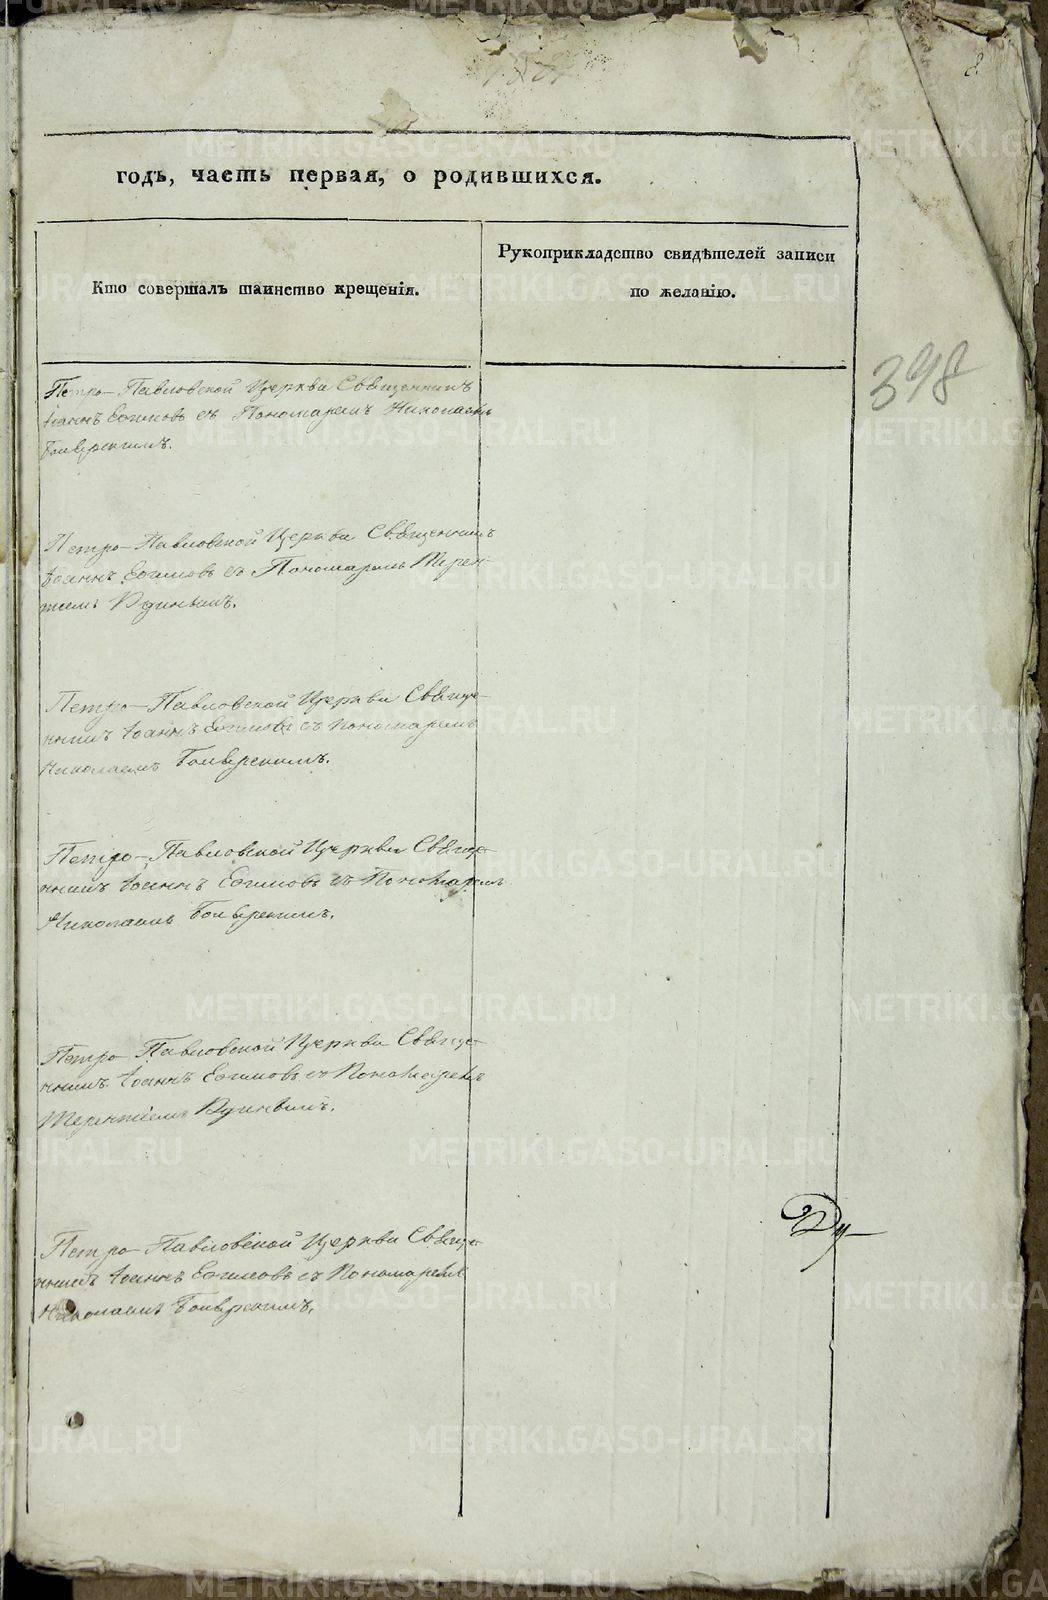 8
годъ, часть первая, о родившихся.
Кто совершалъ таинство крещенія.
Рукоприкладство свидѣтелей записи
по желанію.
398
Петро-Павловской Церкви Священникъ
Іоаннъ Ефимовъ съ Пономаремъ Николаемъ
Петро-Павловской Церкви Священникъ
Іоаннъ Ефимовъ съ Пономаремъ Терен-
тіемъ
Петро-Павловской Церкви Свяще-
нникъ Іоаннъ Ефимовъ съ Пономаремъ
Николаемъ
Петро-Павловской Церкви Свяще-
нникъ Іоаннъ Ефимовъ съ Пономаремъ
Николаемъ
Петро-Павловской Церкви Свяще-
нникъ Іоаннъ Ефимовъ съ Пономаремъ
Терентіемъ
Петро-Павловской Церкви Свяще-
нникъ Іоаннъ Ефимовъ съ Пономаремъ
Николаемъ
METRIKI.GASO-URAL.RU